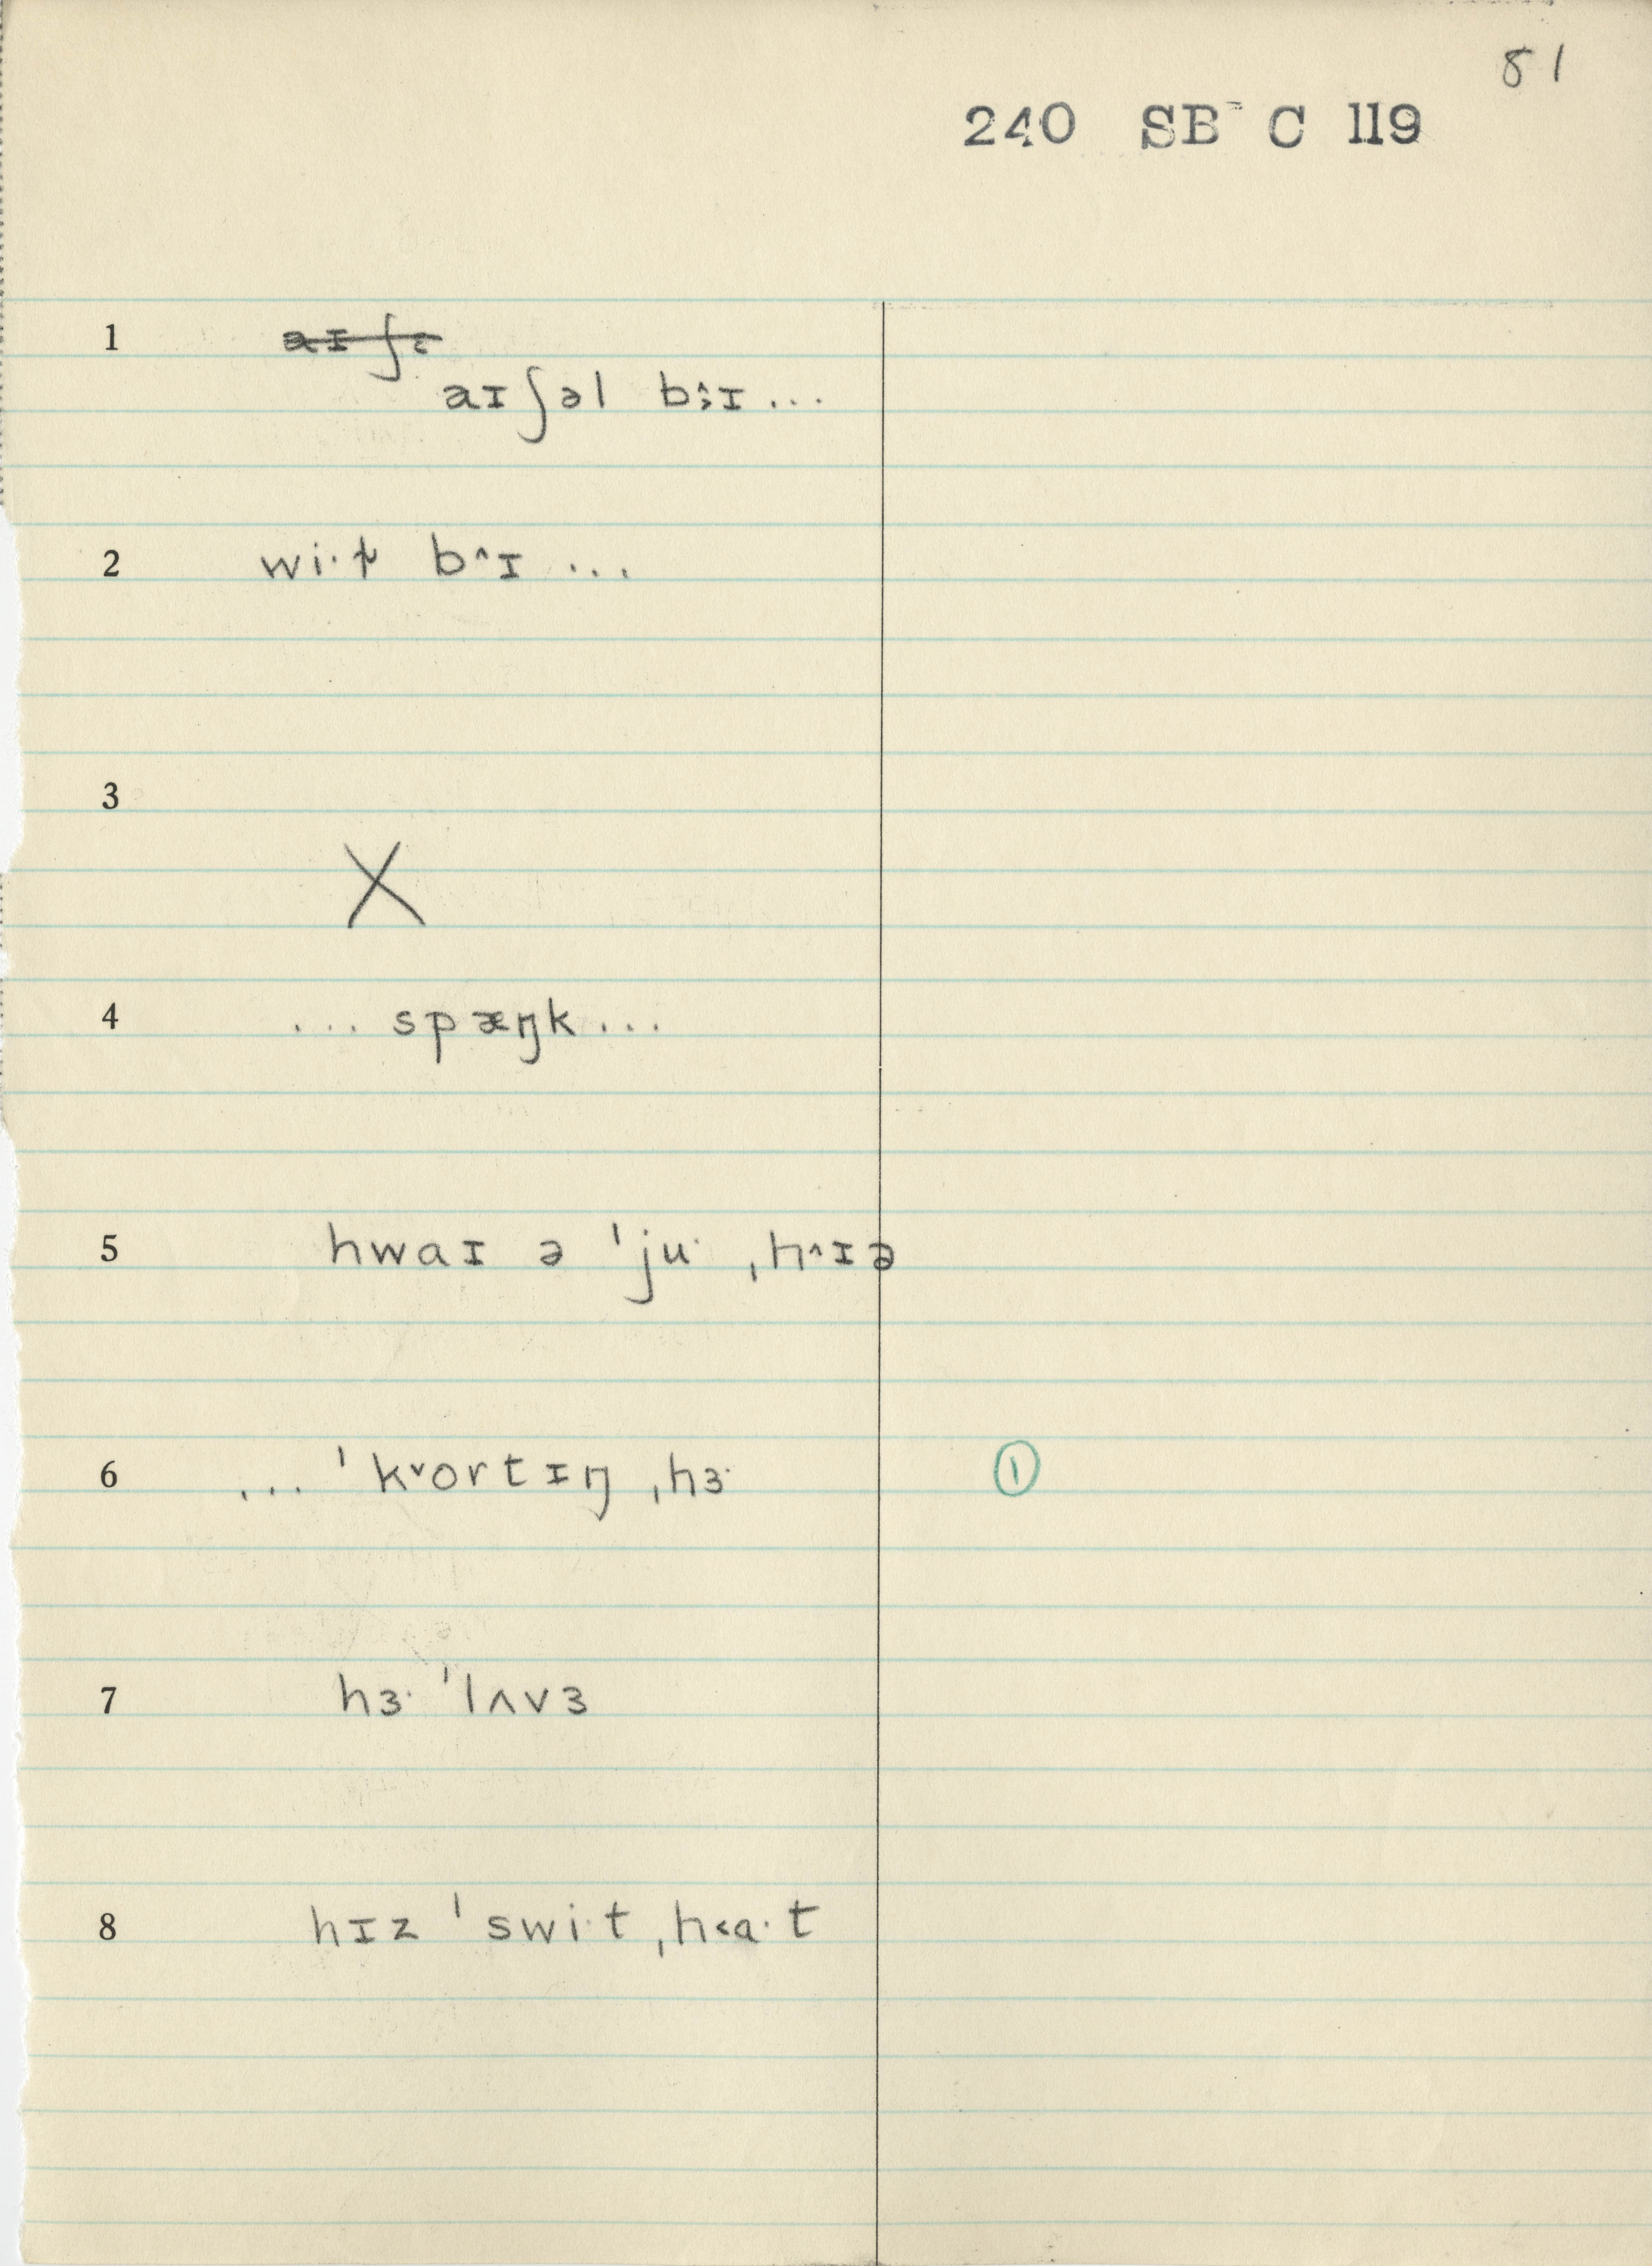 81
240 SB C 119
1 aɪʃə
aɪʃəl b˄ɪ...
2 wi·t b˄ɪ ...
3
X
4 ... spæŋk...
5 hwaɪ ə ˈju· ˌh˄ɪə
6 ... ˈk˅ortɪŋ ˌhɜ· ①
7 hɜ· ˈlʌvɜ
8 hɪz ˈswi·t ˌh˂a·t